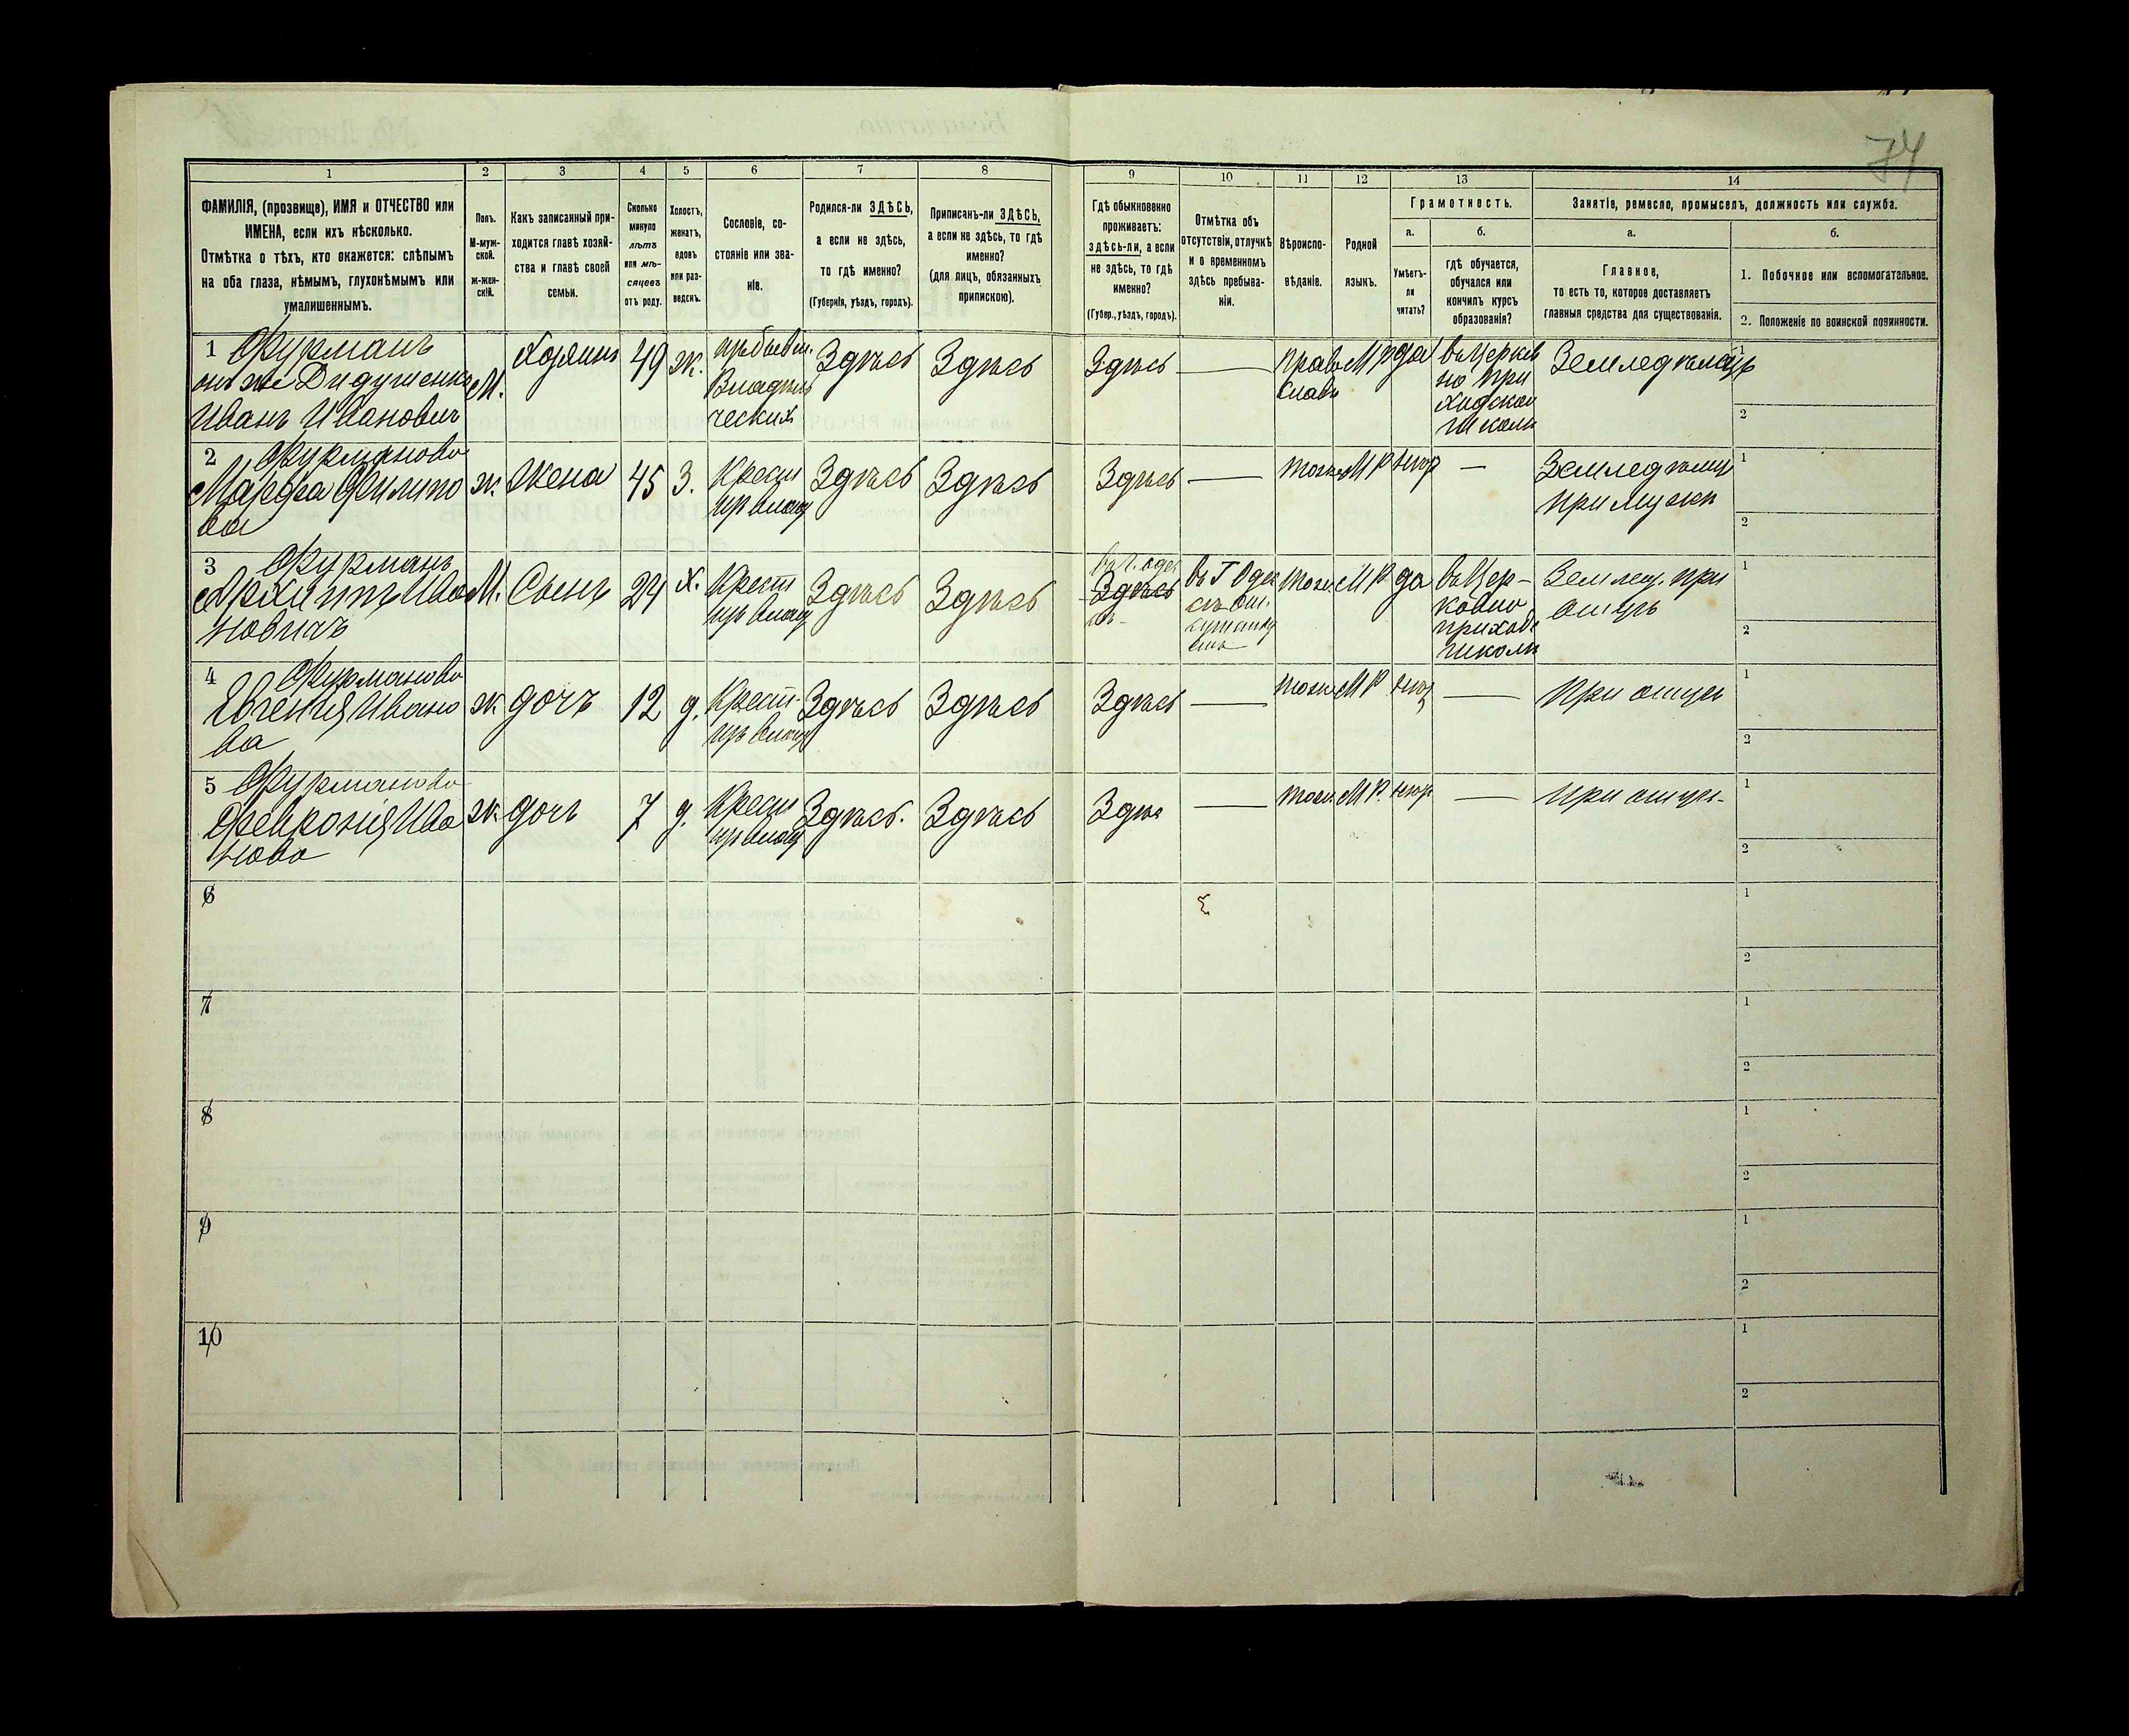 74
1 2 3 4 5 6 7 8 9 10 11 12 13 14
ФАМИЛІЯ, (прозвище), ИМЯ и ОТЧЕСТВО или
ИМЕНА, если ихъ нѣсколько.
Отмѣтка о тѣхъ, кто окажется: слѣпымъ
на оба глаза, нѣмымъ, глухонѣмымъ или
умалишеннымъ.
Полъ.
М-муж-
ской.
ж-жен-
скій.
Какъ записанный при-
ходится главѣ хозяй-
ства и главѣ своей
семьи.
Сколько
минуло
лѣтъ
или мѣ-
сяцевъ
отъ роду.
Холостъ,
женатъ,
вдовъ
или раз-
веденъ.
Сословіе, со-
стояніе или зва-
ніе.
Родился-ли ЗДѢСЬ,
а если не здѣсь,
то гдѣ именно?
(Губернія, уѣздъ, городъ).
Приписанъ-ли ЗДѢСЬ,
а если не здѣсь, то гдѣ
именно?
(для лицъ, обязанныхъ
припискою).
Гдѣ обыкновенно
проживаетъ:
здѣсь-ли, а если
не здѣсь, то гдѣ
именно?
(Губер., уѣздъ, городъ).
Отмѣтка объ
отсутствіи, отлучкѣ
и о временномъ
здѣсь пребыва-
ніи.
Вѣроиспо-
вѣданіе.
Родной
языкъ.
Грамотность.
а.
Умѣетъ-
ли
читать?
б.
гдѣ обучается,
обучался или
кончилъ курсъ
образованія?
Занятіе, ремесло, промыселъ, должность или служба.
а.
Главное,
то есть то, которое доставляетъ
главныя средства для существованія.
б.
1. Побочное или вспомогательное.
2. Положеніе по воинской повинности.
1 Фурманъ
онъ же Дидушенко
Иванъ Ивановичъ
М.
Хозяинъ
49
ж.
Владѣль
ческихъ
Здѣсь
Здѣсь
Здѣсь
—
Право
слав
М Р
да
въ Церков
но При
ходской
школѣ
Земледѣлецъ
1
2
2 Фурманова
Марфа Филипо
ва
ж.
Жена
45
З.
Крест
изъ влад
Здѣсь
Здѣсь
Здѣсь
—
тоже
М Р
нѣтъ
—
Земледѣлец
при мужѣ
1
2
3 Фурманъ
Архиппъ Ива
новичъ
М.
Сынъ
24
х.
Крест
изъ влад
Здѣсь
Здѣсь
въ г. Одес
Здѣсь
въ Г Одес
тоже
М Р
да
въ Цер-
ковно
приход.
школѣ
Землед. при
отцѣ
1
2
4 Фурманова
Евгенія Ивано
ва
ж
дочь
12
д.
Крест.
изъ влад
Здѣсь
Здѣсь
Здѣсь
—
тоже
М Р
нѣтъ
—
При отцѣ
1
2
5 Фурманова
Февронія Ива
нова
ж.
дочь
7
д.
Крест
изъ влад
Здѣсь.
Здѣсь
Здѣс
—
тоже.
М Р.
нѣтъ
—
При отцѣ.
1
2
6
1
2
7
1
2
8
1
2
9
1
2
10
1
2